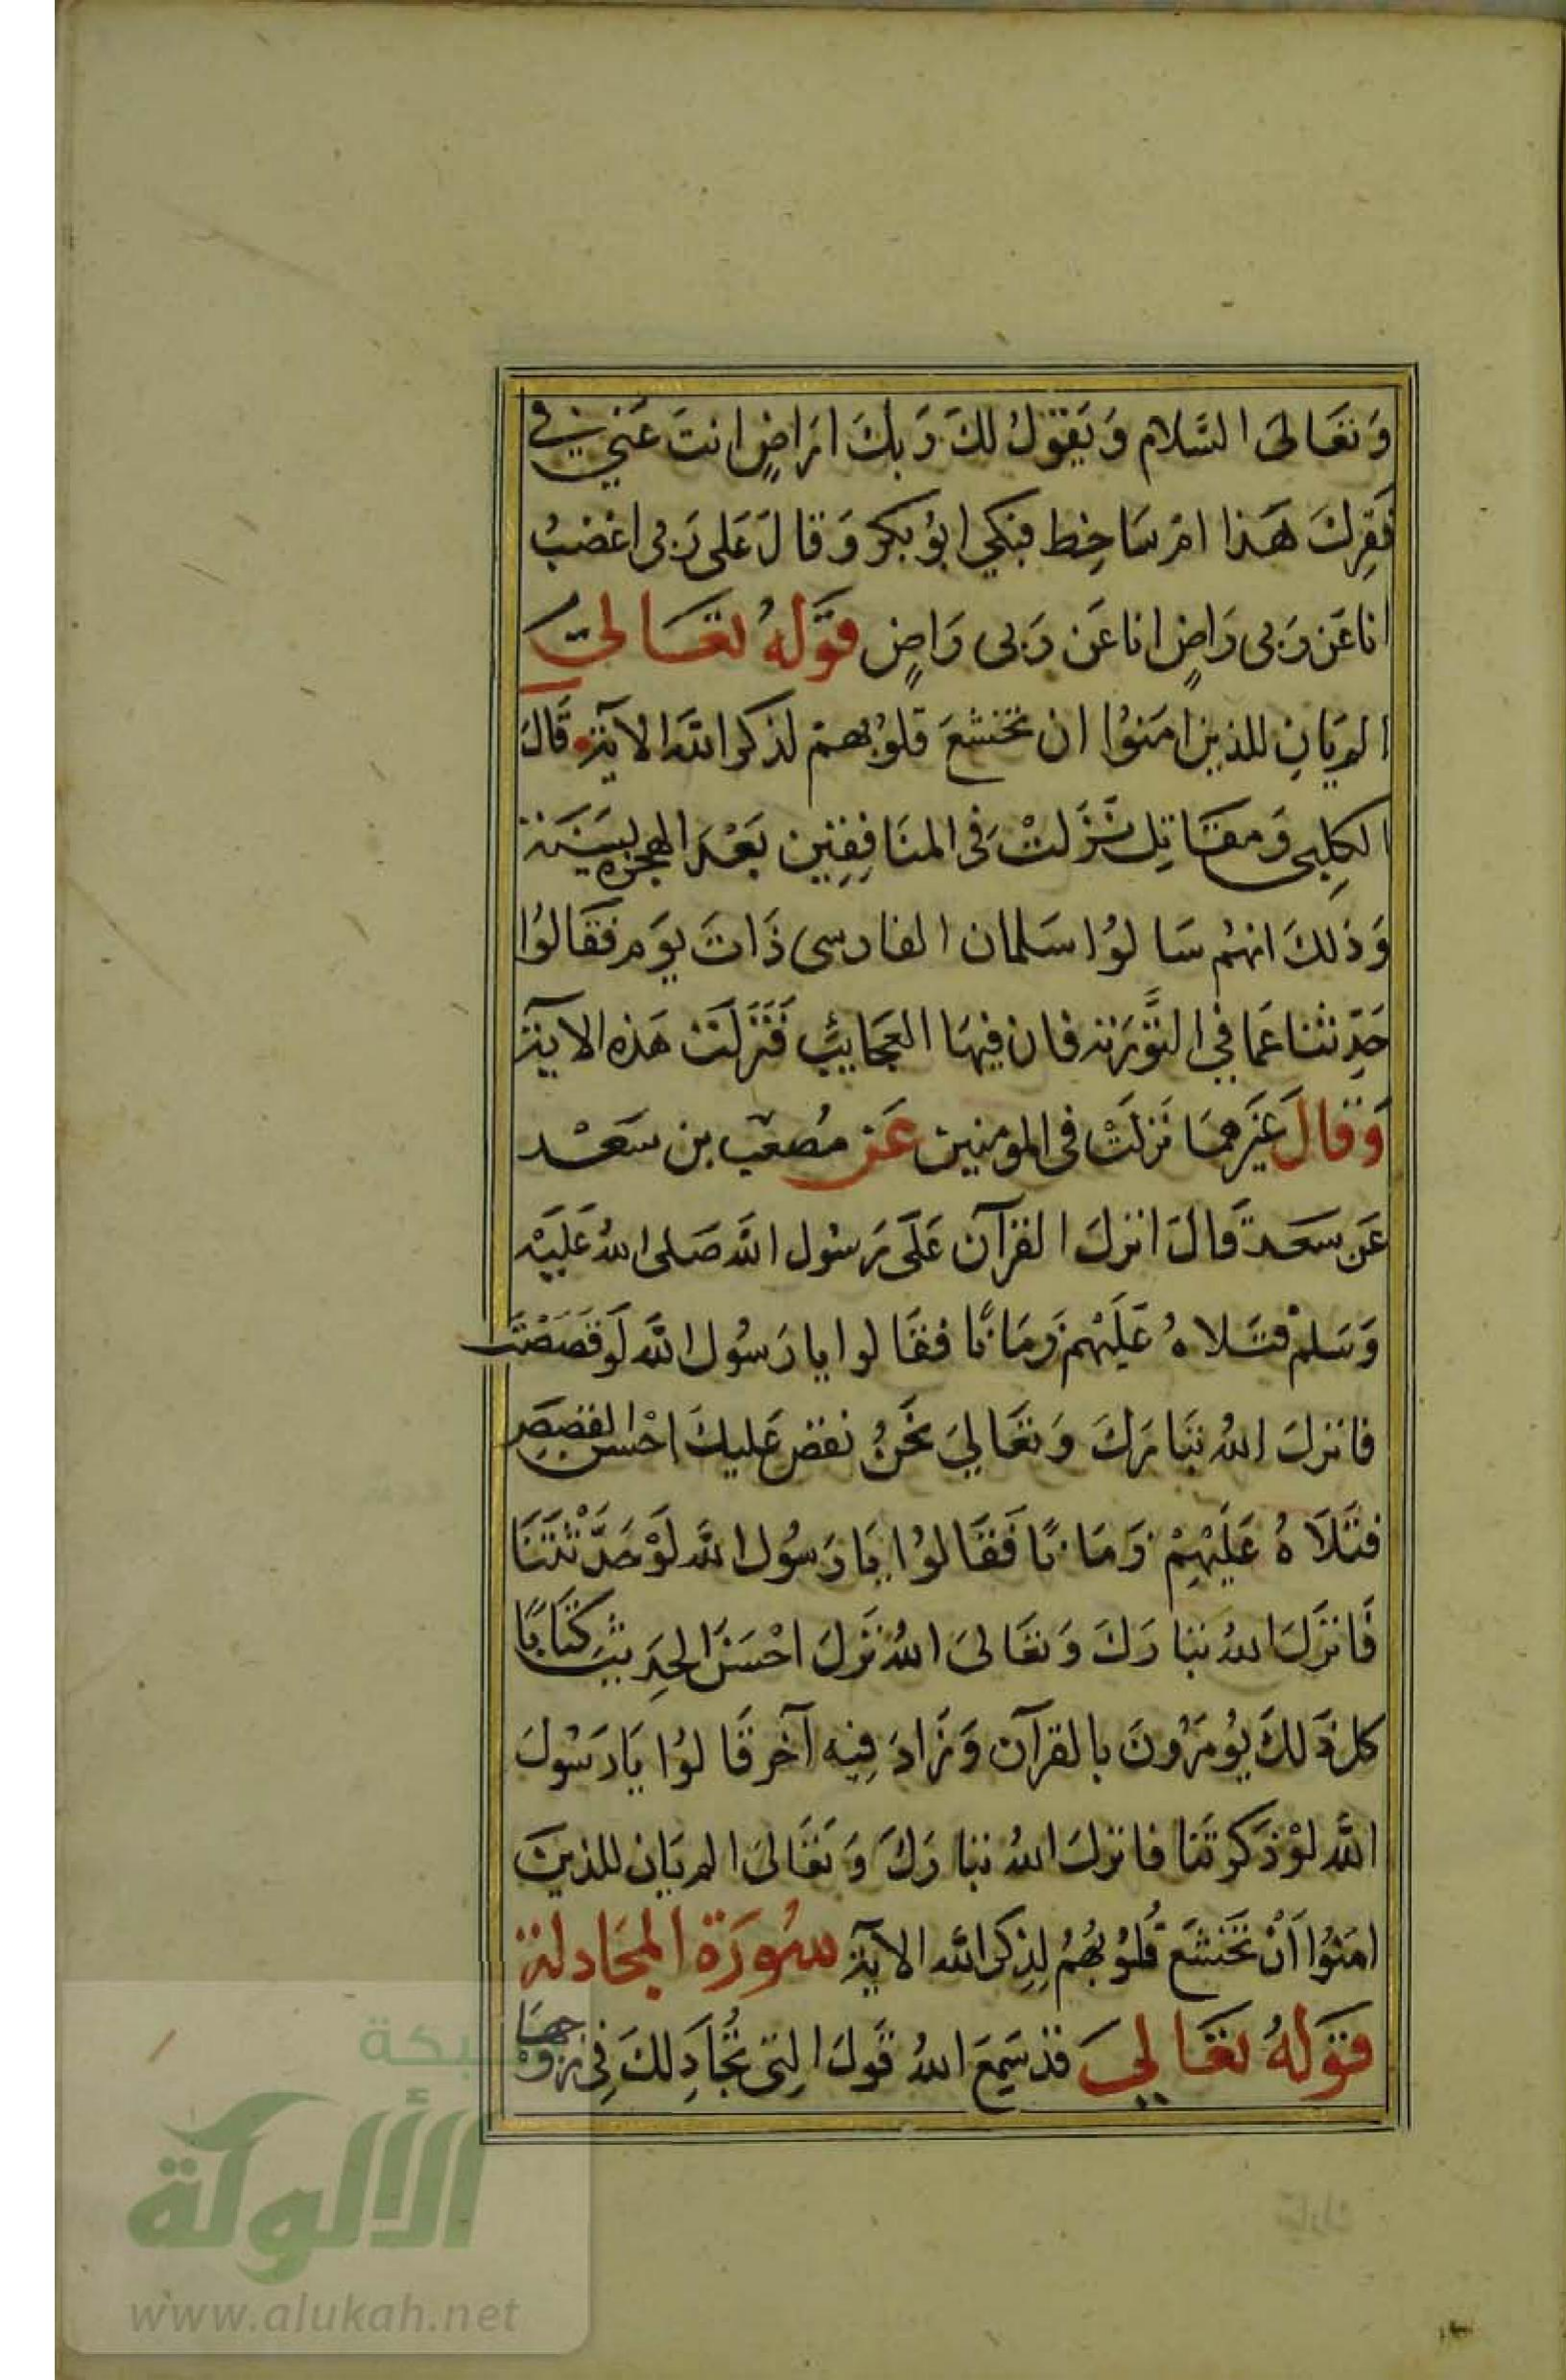 وَتعَالىَ السَّلام وَيَقوَلُ لكَ رَبكَ ارَاضٍ انتَ عَني في
فَقرِكَ هَذا امْ سَاخِط فبَكي ابوُبَكر وَقالَ عَلى رَبى اغضبُ
اناعَن رَبى رَاضٍ اناعَن رَبى رَاضٍ قوَلهُ تعَالىَ
الم يَانِ للذين امَنوُا ان تخشعَ قلوُبهمْ لذكر الله الآية قالَ
الكلِبى وَمقاتِل نَزَلتْ فى المنَافِقِين بَعْد الهجرة بسَنة
وَذلكَ انهُم سَالوُا سَلمان الفارسى ذَاتَ يوَم فقَالوُا
حَدِّثنا عَما في التَّوَرة فان فيهَا العَجَائِب فَنَزَلَت هَذه الآية
وَقالَ غيَرهمَا نَزلَتْ فى المومنين عَن مُصعَب بن سَعْد
عَن سَعد قَالَ انزلَ القرآن عَلَى رَسُول الله صَلى اللهُ عَليَه
وَسَلمْ فتَلاهُ عَلَيْهمْ زَمَانًا فقَالوا يا رَسُول الله لَو قصَصْتَ
فانزلَ اللهُ تبَارَكَ وَتعَاليَ نحَنُ نقص عَليكَ احْسن القصَصِ
فتَلَاهُ عَلَيْهِمْ زَمَانًا فَقَالوُا يَا رَسُول الله لَوْ حَدَّثْتَنَا
فَانزَلَ اللهُ تبَارَكَ وَتعَالىَ اللهُ نَزلَ احْسَنَ الحدِيثِ كتَابًا
كل ذَلكَ يُومَرُونَ بالقرآن وَزَادَ فِيه آخر قَالوُا يَا رَسُولَ
الله لوْ ذكرتنَا فانزلَ اللهُ تبارَكَ وَتعَالىَ الم يَان للذينَ
امَنُوا اَنْ تخَشعَ قُلوُبُهُمْ لِذِكر الله الآية سُورَة المجَادلة
قوَلهُ تعَاليَ قد سَمِعَ اللهُ قَولَ التِى تُجَادِلكَ فِى زوْجهَا
شبكة
الألوكة
www.alukah.net